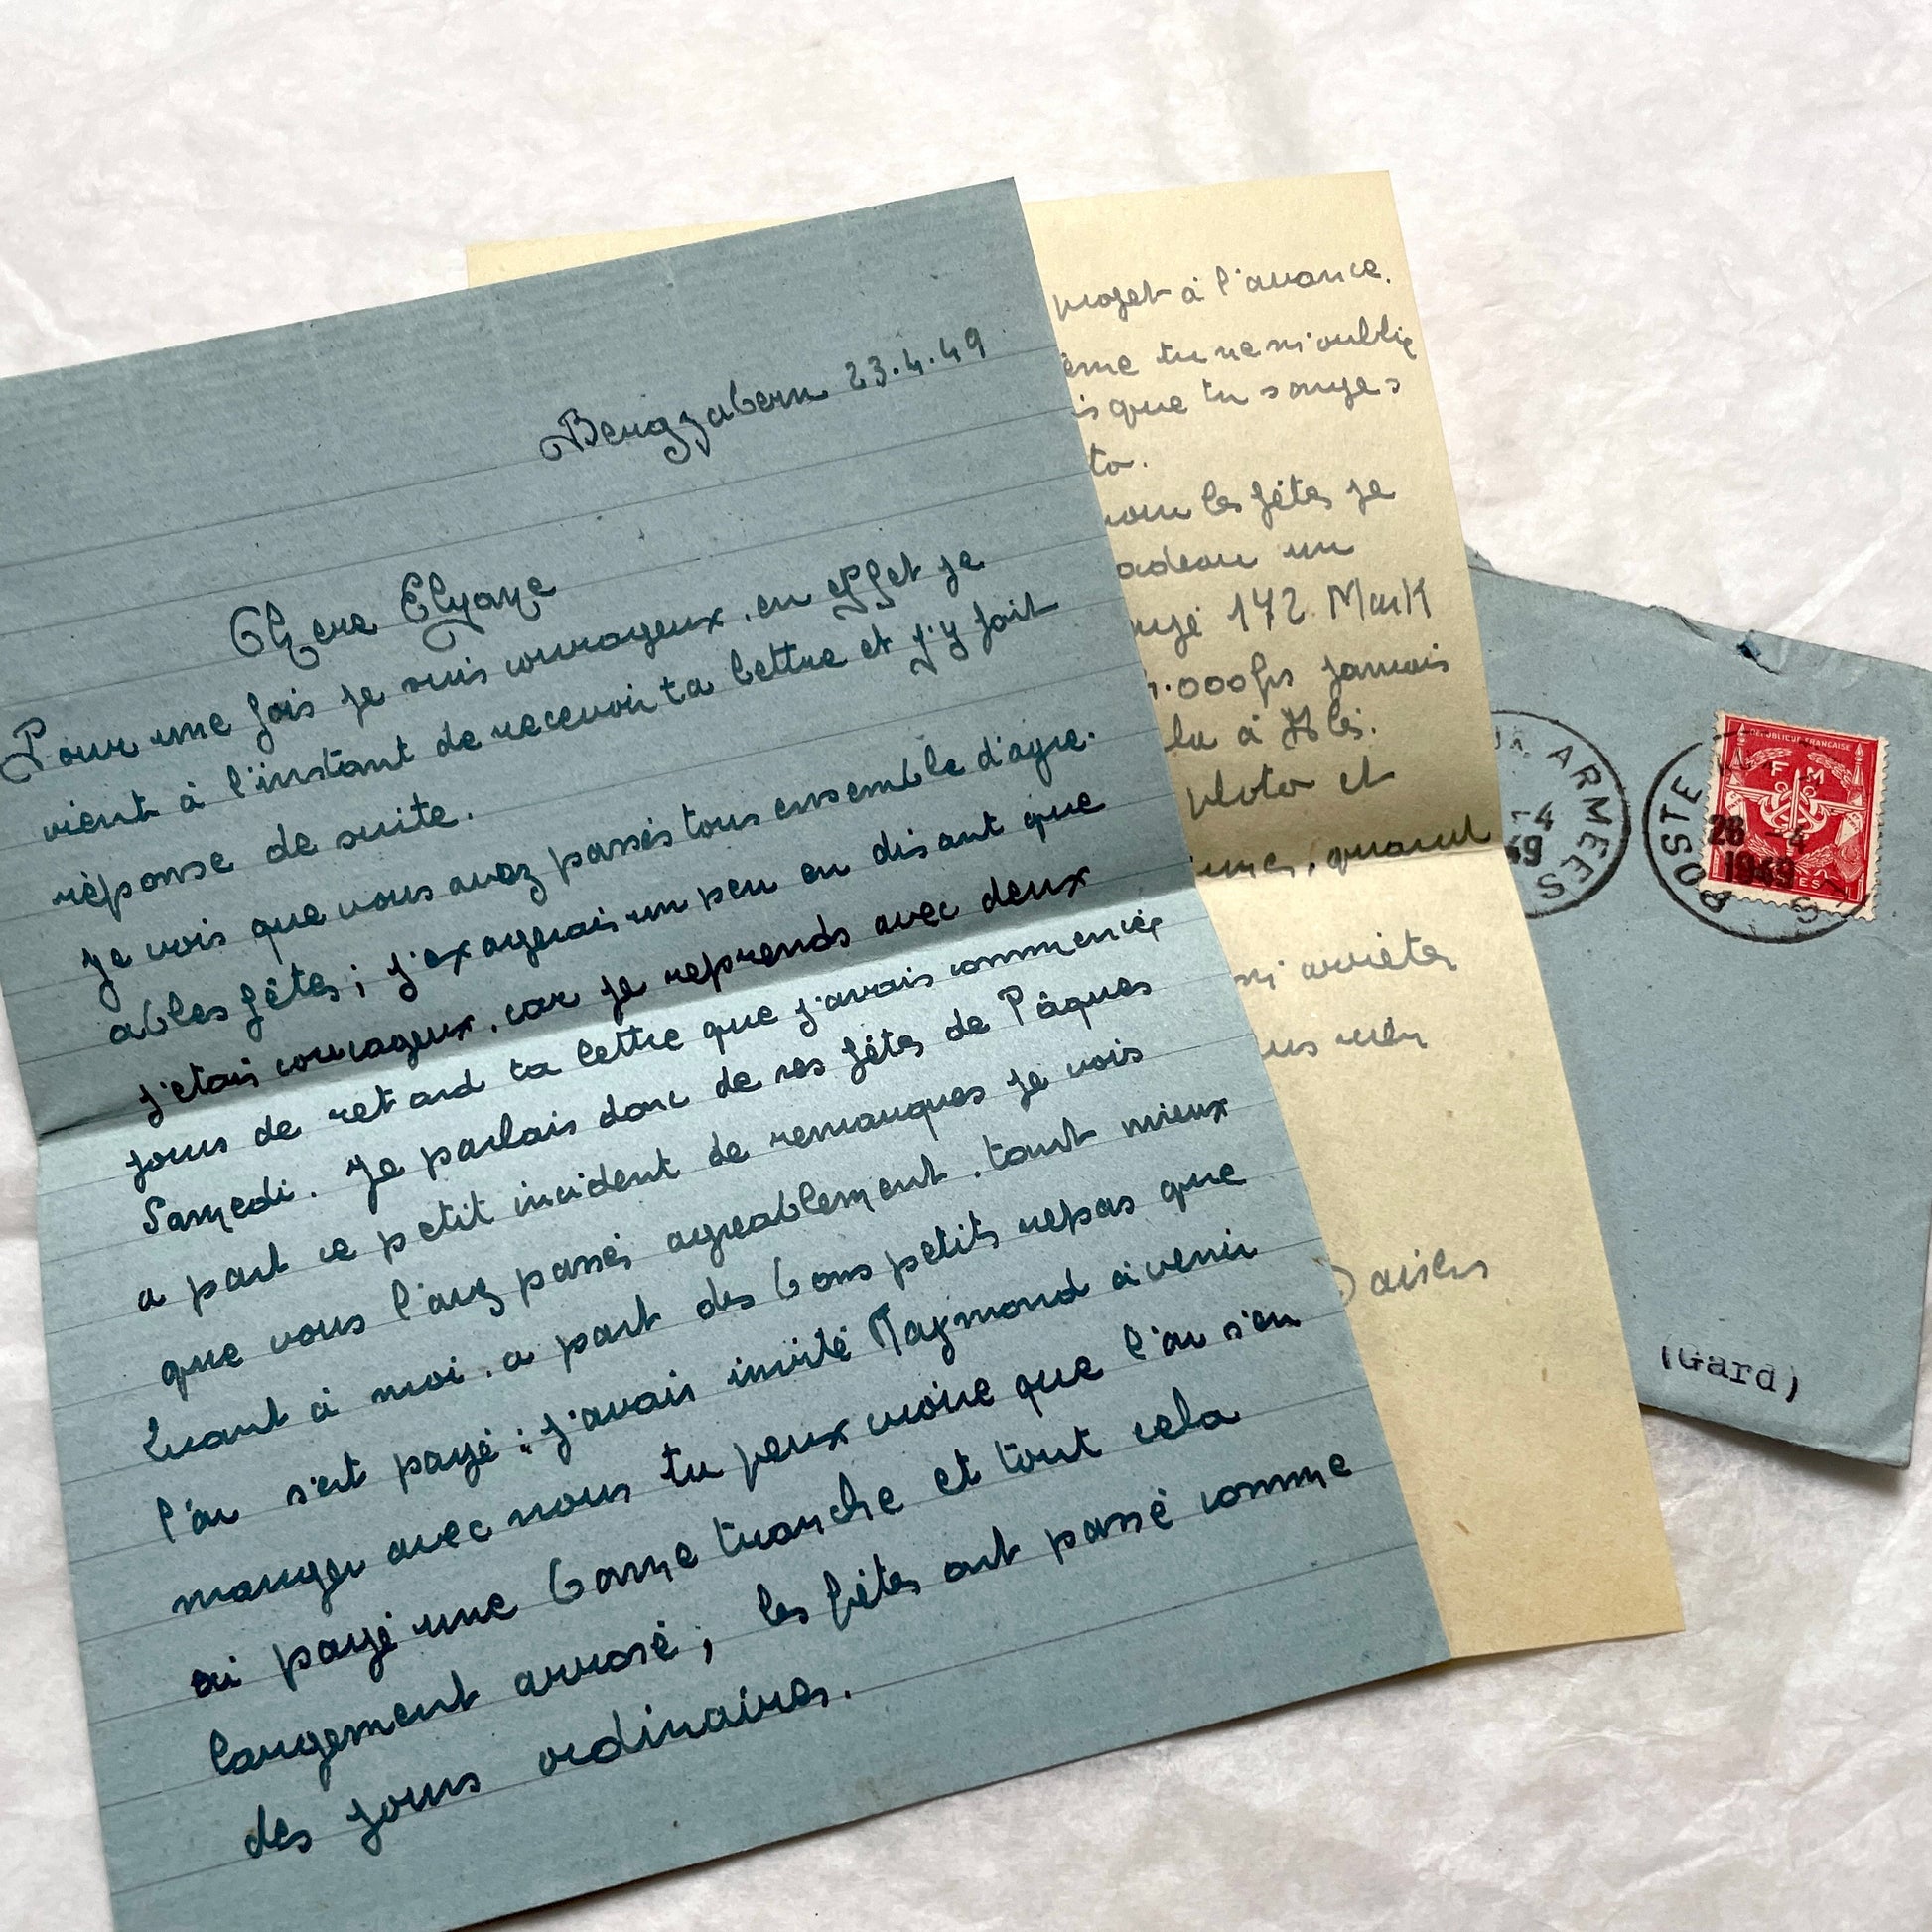 Bergzabern 23.4.49
Chere Elyane
Pour une fois je suis courageux, en effet je
vient à l'instant de recevoir ta lettre et j'y fait
réponse de suite.
Je vois que vous avez passés tous ensemble d'agre-
ables fêtes; j'exagerais un peu en disant que
j'etais courageux, car je reprends avec deux
jours de retard ta lettre que j'avais commencée
Samedi. Je parlais donc de nos fêtes de Pâques
a part ce petit incident de remarques je vois
que vous l'avez passés agreablement, tant mieux
Quant à moi, a part des bons petits repas que
l'on s'est payé: j'avais invité Raymond à venir
manger avec nous tu peux croire que l'on s'en
ai payé une bonne tranche et tout cela
largement arrosé; les fêtes ont passé comme
des jours ordinaires.
projet à l'avance.
tu ne m'oublie
que tu songes
les fêtes je
un
172 Mark
.000frs jamais
à
photo et
quand
m'arrêter
Baisers
ARMEES
-4
49
POSTE
26 -4
1949
REPUBLIQUE FRANCAISE
F M
POSTES
(Gard)